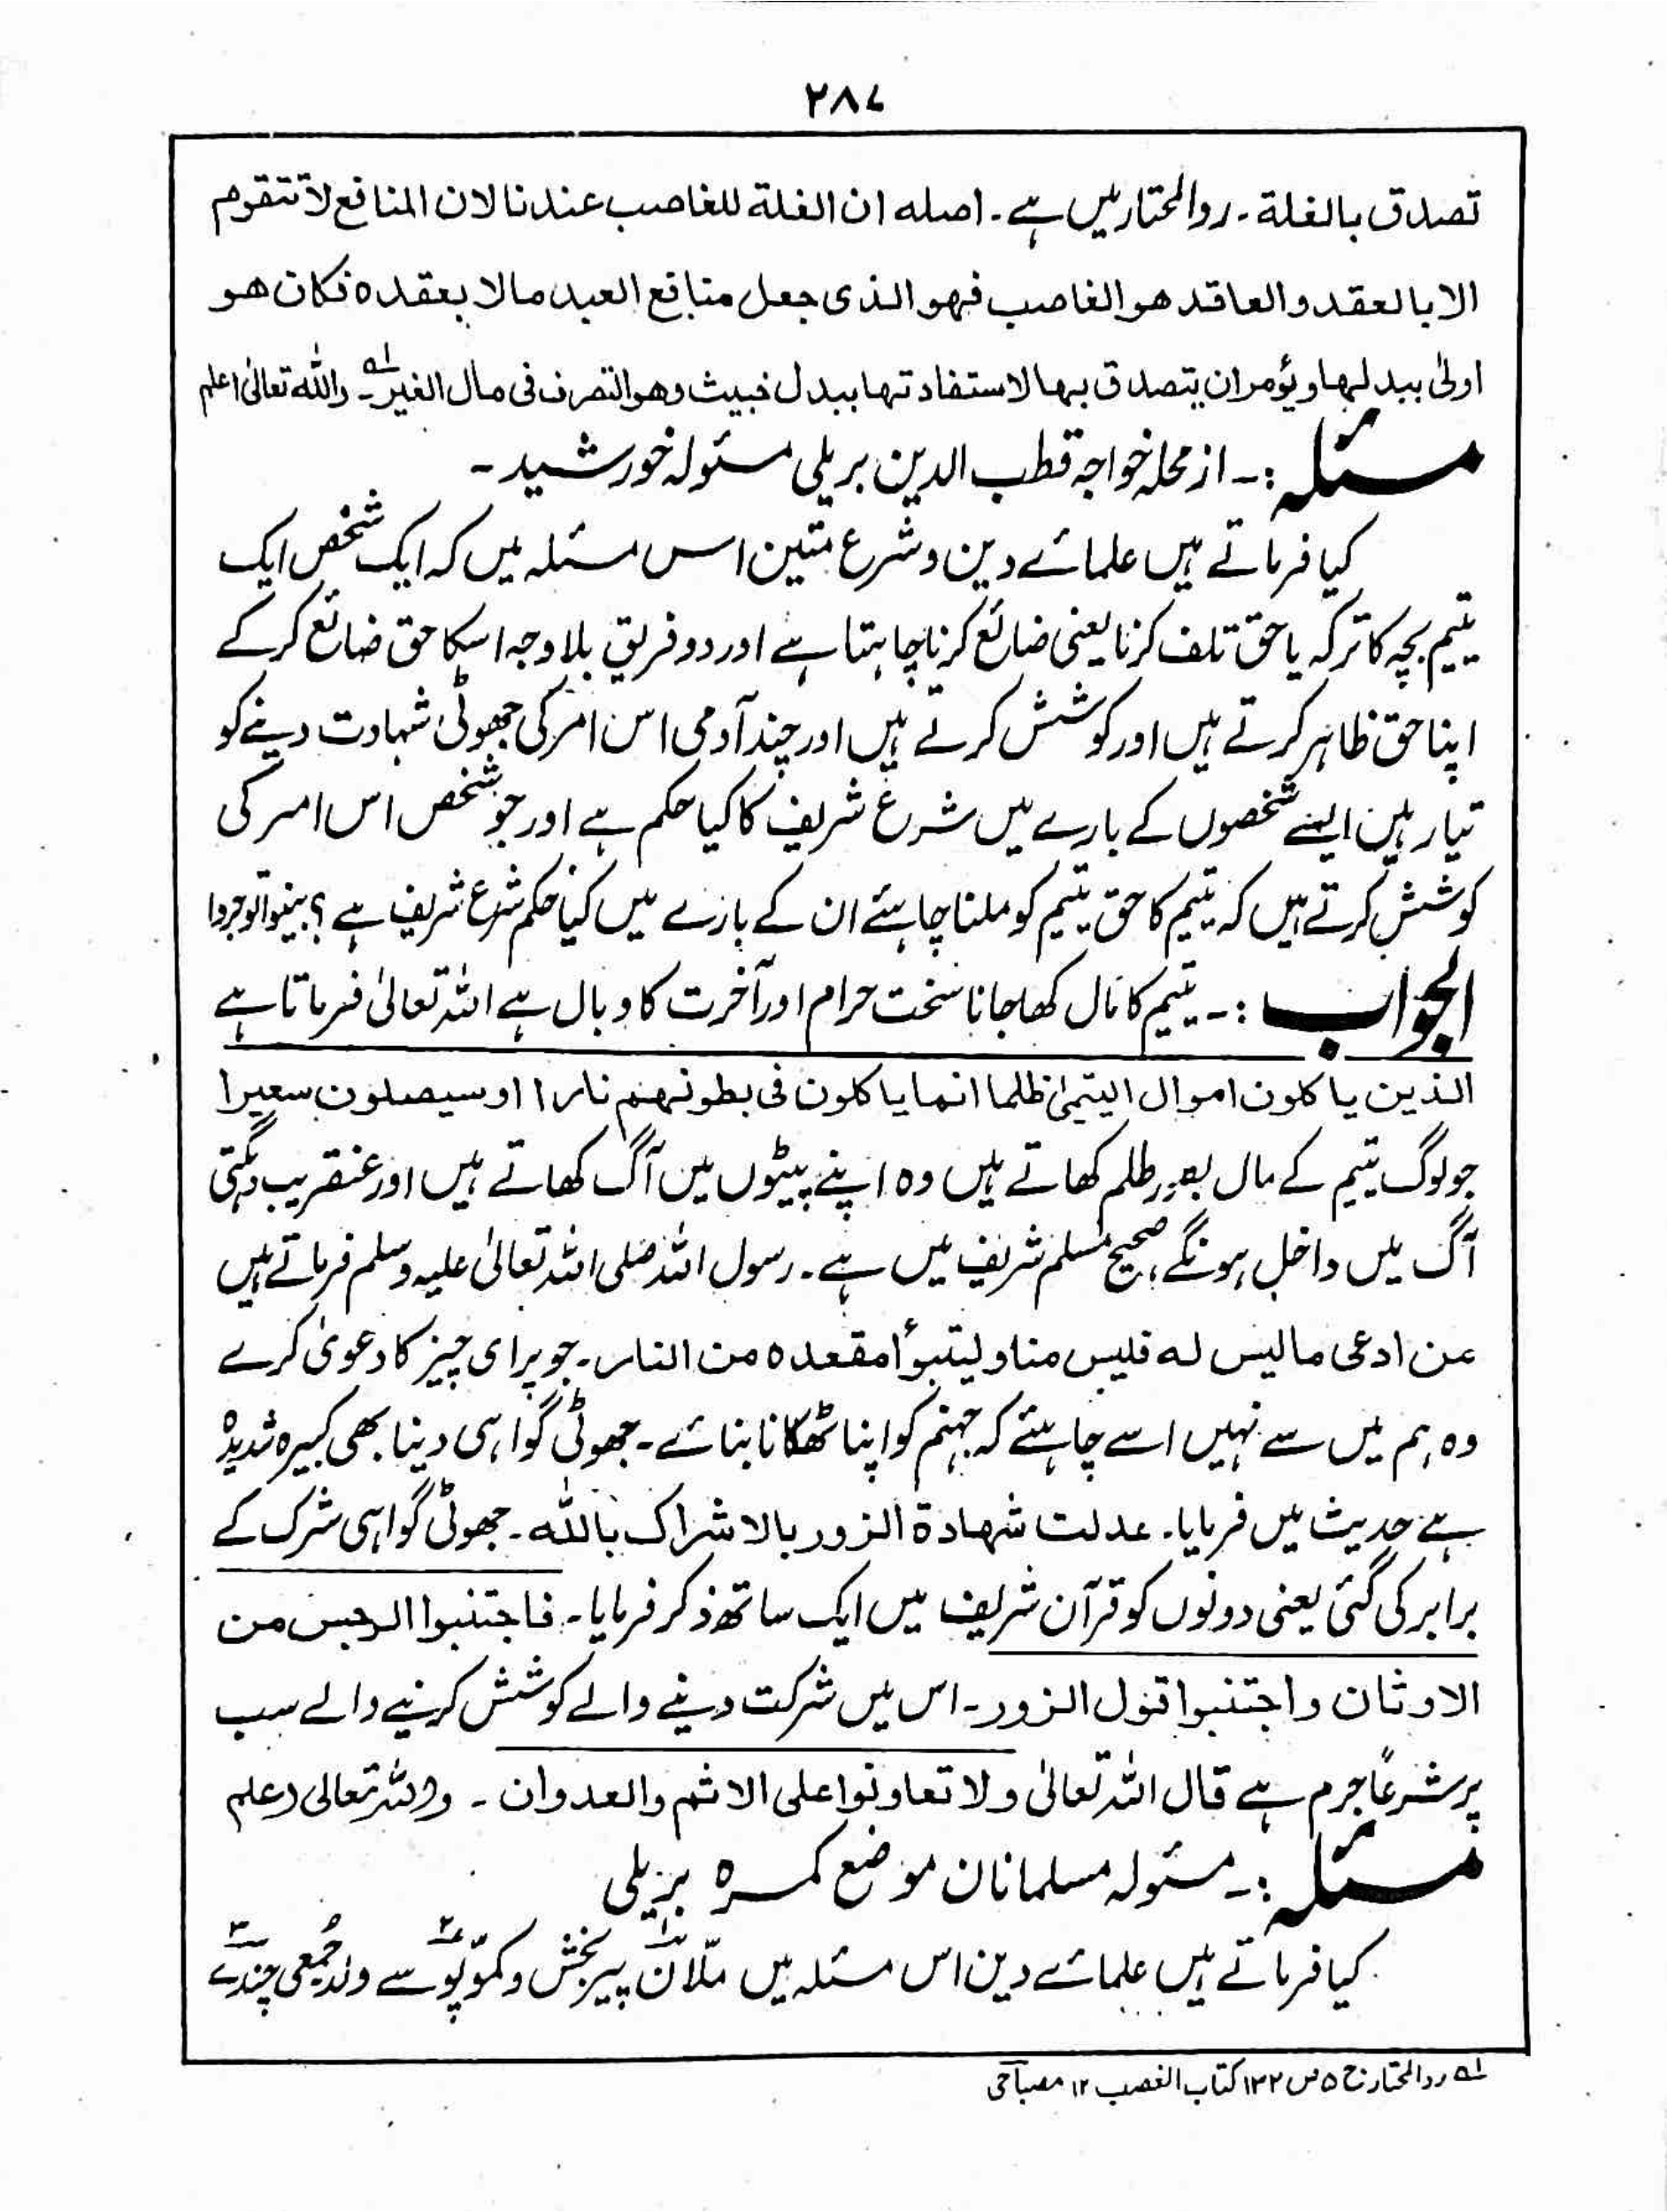 ۲۸۷
تصدق بالغلة ۔ ردالمحتار میں ہے ۔ اصله ان الغلة للغاصب عندنا لان المنافع لا تتقوم
الا بالعقد و العاقد هو الغاصب فهو الذی جعل منافع العبد مالا بعقده فکان هو
اولیٰ ببدلها و یؤمر ان یتصدق بها لاستفادتها ببدل خبیث وهو التصرف فی مال الغیر ۱ھ ۔ واللہ تعالیٰ اعلم
مسئلہ :۔ از محلہ خواجہ قطب الدین بریلی مسئولہ خورشید ۔
کیا فرماتے ہیں علمائے دین و شرع متین اس مسئلہ میں کہ ایک شخص ایک
یتیم بچہ کا ترکہ یا حق تلف کرنا یعنی ضائع کرنا چاہتا ہے اور دو فریق بلا وجہ اسکا حق ضائع کرکے
اپنا حق ظاہر کرتے ہیں اور کوشش کرتے ہیں اور چند آدمی اس امر کی جھوٹی شہادت دینے کو
تیار ہیں ایسے شخصوں کے بارے میں شرع شریف کا کیا حکم ہے اور جو شخص اس امر کی
کوشش کرتے ہیں کہ یتیم کا حق یتیم کو ملنا چاہئے ان کے بارے میں کیا حکم شرع شریف ہے ؟ بینوا توجروا
الجواب :۔ یتیم کا مال کھا جانا سخت حرام اور آخرت کا وبال ہے اللہ تعالیٰ فرماتا ہے
الذین یاکلون اموال الیتمیٰ ظلما انما یاکلون فی بطونهم نارا او سیصلون سعیرا
جو لوگ یتیم کے مال بطور ظلم کھاتے ہیں وہ اپنے پیٹوں میں آگ کھاتے ہیں اور عنقریب دہکتی
آگ میں داخل ہونگے، صحیح مسلم شریف میں ہے ۔ رسول اللہ صلی اللہ تعالیٰ علیہ وسلم فرماتے ہیں
من ادعی مالیس له فلیس منا و لیتبوأ مقعده من النار ۔ جو پرای چیز کا دعویٰ کرے
وہ ہم میں سے نہیں اسے چاہئے کہ جہنم کو اپنا ٹھکانا بنائے ۔ جھوٹی گواہی دینا بھی کبیرہ شدیدہ
ہے حدیث میں فرمایا ۔ عدلت شهادة الزور بالاشراک بالله ۔ جھوٹی گواہی شرک کے
برابر کی گئی یعنی دونوں کو قرآن شریف میں ایک ساتھ ذکر فرمایا ۔ فاجتنبوا الرجس من
الاوثان واجتنبوا قول الزور ۔ اس میں شرکت دینے والے کوشش کرنیے والے سب
پر شرعاً جرم ہے قال اللہ تعالیٰ ولا تعاونوا علی الاثم والعدوان ۔ واللہ تعالی اعلم
مسئلہ :۔ مسئولہ مسلمانان موضع کمرہ بریلی
کیا فرماتے ہیں علمائے دین اس مسئلہ میں ملّان پیر بخش و کمّو پوسے ولد جمعی چندے
۱ھ ردالمحتار ج ۵ ص ۱۲۲ کتاب الغصب ۱۲ مصباحی